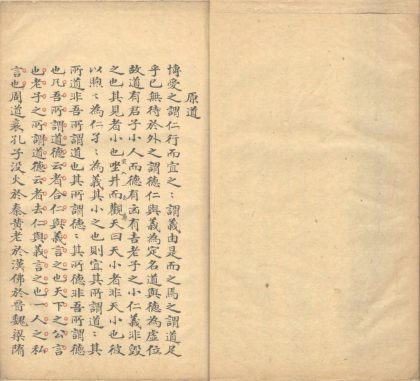 原道
博愛之謂仁行而宜之〻謂義由是而之焉之謂道足
乎已無待於外之謂德仁與義為定名道與德為虛位
故道有君子小人而德有凶有吉老子之小仁義非毀
之也其見者小也坐井而觀天曰天小者非天小也彼
以煦〻為仁孑〻為義其小之也則宜其所謂道〻其
所道非吾所謂道也其所謂德〻其所德非吾所謂德
也凡吾所謂道德云者合仁與義言之也天下之公言
也老子之所謂道德云者去仁與義言之也一人之私
言也周道衰孔子没火於秦黃老於漢佛於晉魏梁隋